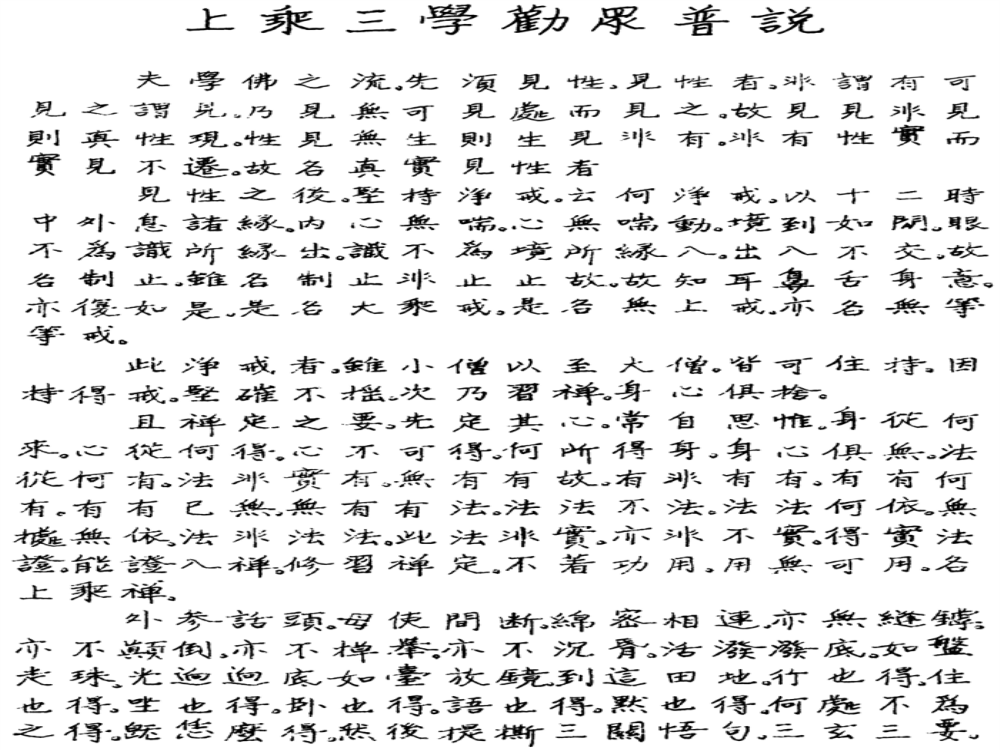 上乘三學勸眾普説
夫學佛之流。先須見性。見性者。非謂有可
見之謂見。乃見無可見處而見之。故見見非見
則真性現。性見無生則生見非有。非有性實而
實見不遷。故名真實見性者
見性之後。堅持淨戒。云何淨戒。以十二時
中外息諸緣。內心無喘。心無喘動。境到如閒。眼
不為識所緣出。識不為境所緣入。出入不交。故
名制止。雖名制止非止止故。故知耳鼻舌身意。
亦復如是。是名大乘戒。是名無上戒。亦名無等
等戒。
此淨戒者。雖小僧以至大僧。皆可住持。因
持得戒。堅確不搖。次乃習禅。身心俱捨。
且禅定之要。先定其心。常自思惟。身從何
來。心從何得。心不可得。何所得身。身心俱無。法
從何有。法非實有。無有有故。有非有有。有有何
有。有有已無。無有有法。法法不法。法法何依。無
據無依。法非法法。此法非實。亦非不實。得實法
證。能證入禅。修習禅定。不着功用。用無可用。名
上乘禅。
外参話頭。毋使間断。綿密相連。亦無縫罅。
亦不顛倒。亦不掉舉。亦不沉昏。活潑潑底。如盤
走珠。光迥迥底。如臺放鏡。到這田地。行也得。住
也得。坐也得。卧也得。語也得。默也得。何處不為
之得。既恁麼得。然後提撕三關悟句。三玄三要。